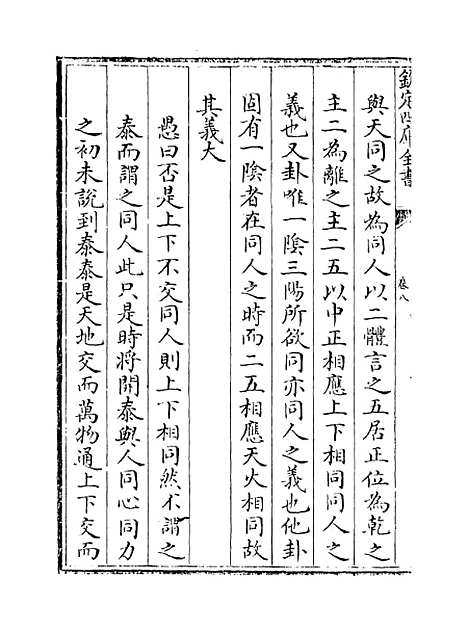 欽定四庫全書
卷八
與天同之故為同人以二體言之五居正位為乾之
主二為離之主二五以中正相應上下相同同人之
義也又卦唯一陰三陽所欲同亦同人之義也他卦
固有一陰者在同人之時而二五相應天火相同故
其義大
愚曰否是上下不交同人則上下相同然不謂之
泰而謂之同人此只是時將開泰與人同心同力
之初未說到泰泰是天地交而萬物通上下交而